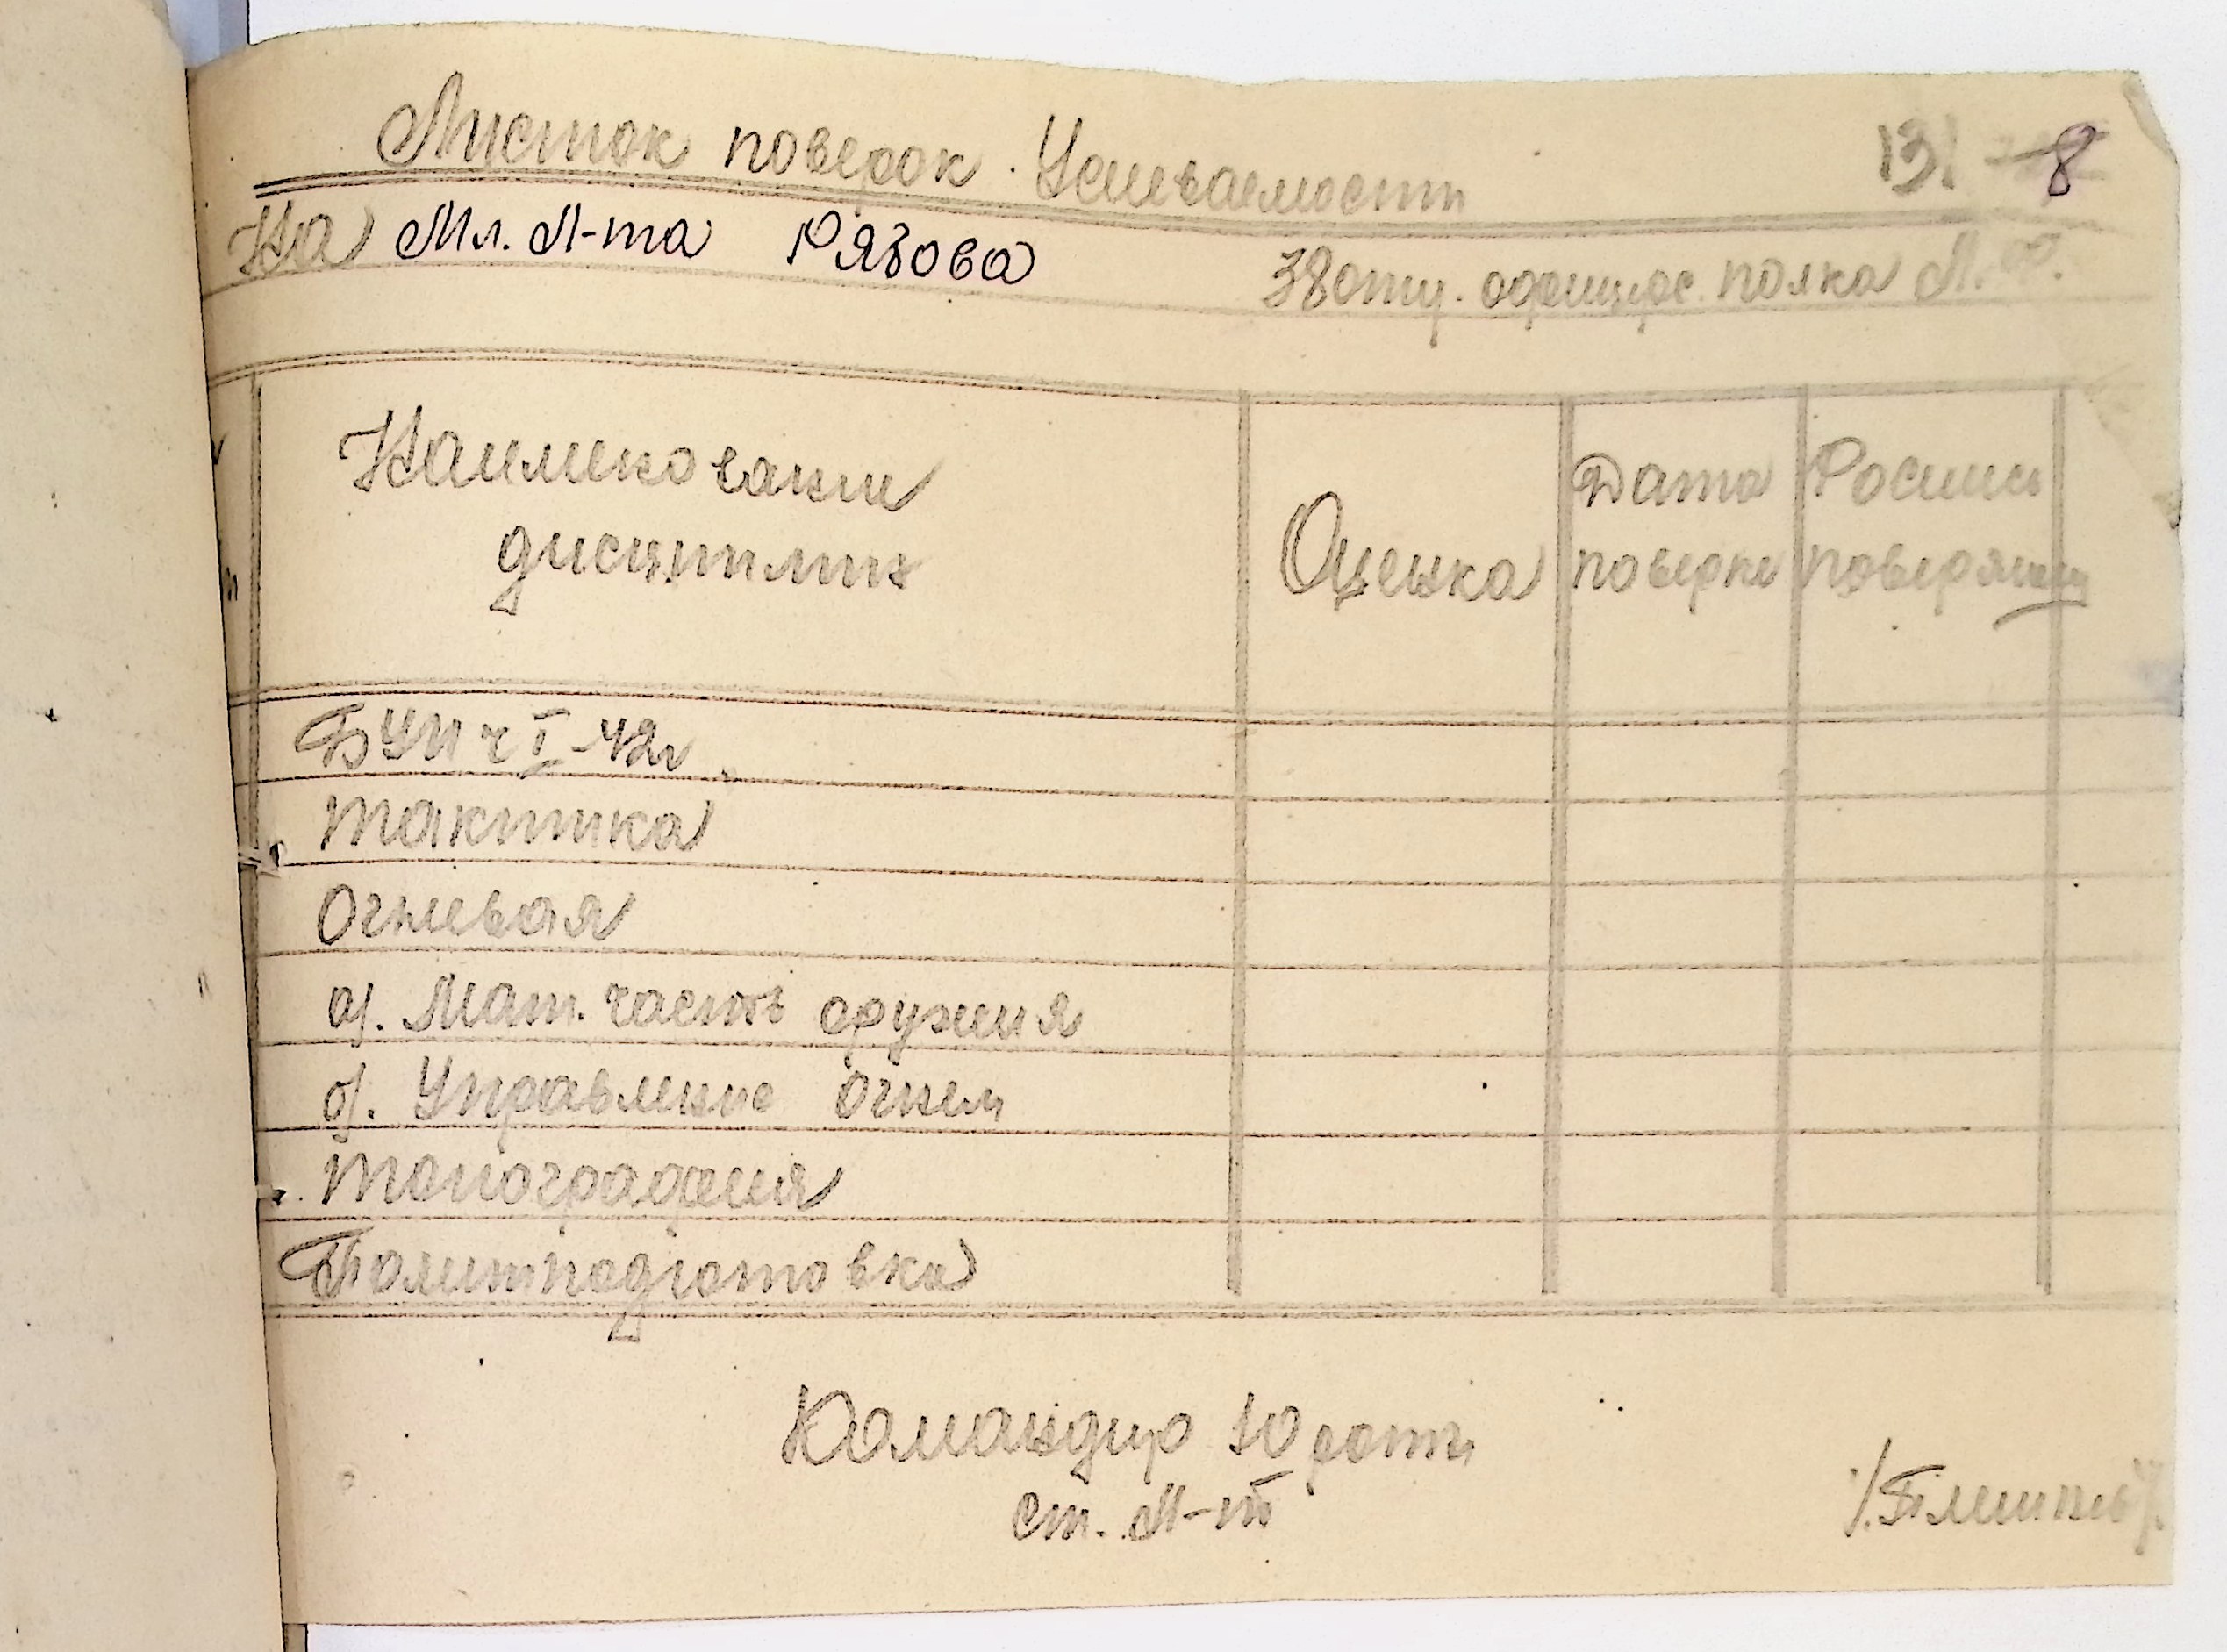 Листок поверок Успеваемости 13. 8
На Мл. Л-та Рязова 38 отд. офицерс. полка Л.Ф.
Наименовании дисциплин
Оценка
Дата поверки
Роспись поверяющ
БУП ч I-42г
тактика
Огневая
а). Мат. часть оружия
б). Управление огнем
топография
Политподготовка
Командир 10 роты
ст. Л-т